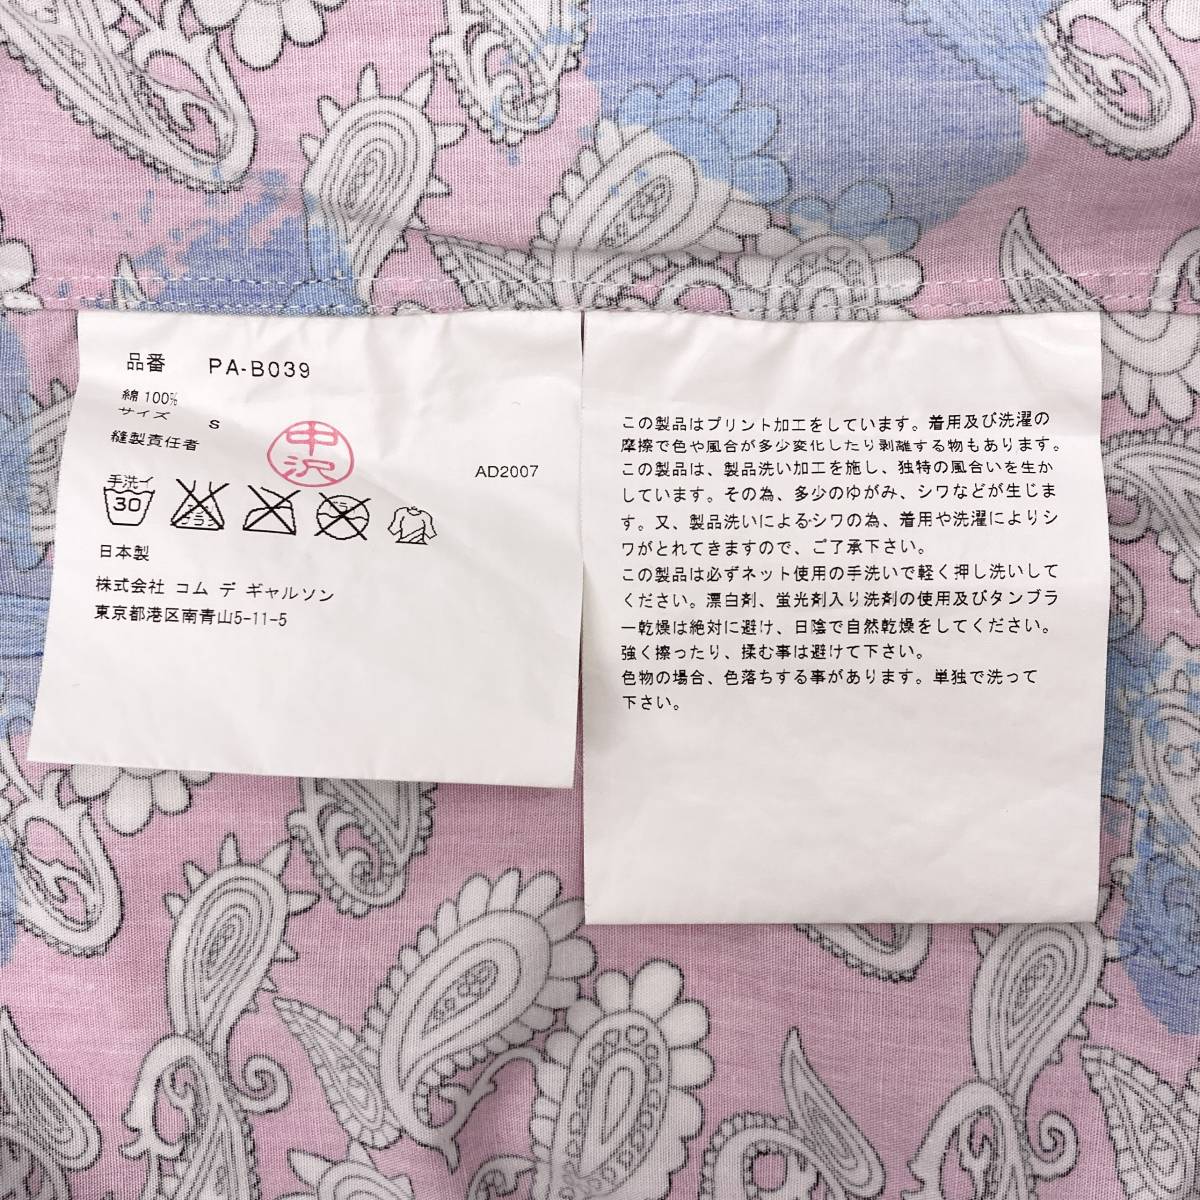 品番 PA-B039
綿 100%
サイズ S
縫製責任者
中沢
AD2007
手洗イ
30
日本製
株式会社 コム デ ギャルソン
東京都港区南青山5-11-5
この製品はプリント加工をしています。着用及び洗濯の
摩擦で色や風合が多少変化したり剥離する物もあります。
この製品は、製品洗い加工を施し、独特の風合いを生か
しています。その為、多少のゆがみ、シワなどが生じま
す。又、製品洗いによるシワの為、着用や洗濯によりシ
ワがとれてきますので、ご了承下さい。
この製品は必ずネット使用の手洗いで軽く押し洗いして
ください。漂白剤、蛍光剤入り洗剤の使用及びタンブラ
ー乾燥は絶対に避け、日陰で自然乾燥をしてください。
強く擦ったり、揉む事は避けて下さい。
色物の場合、色落ちする事があります。単独で洗って
下さい。